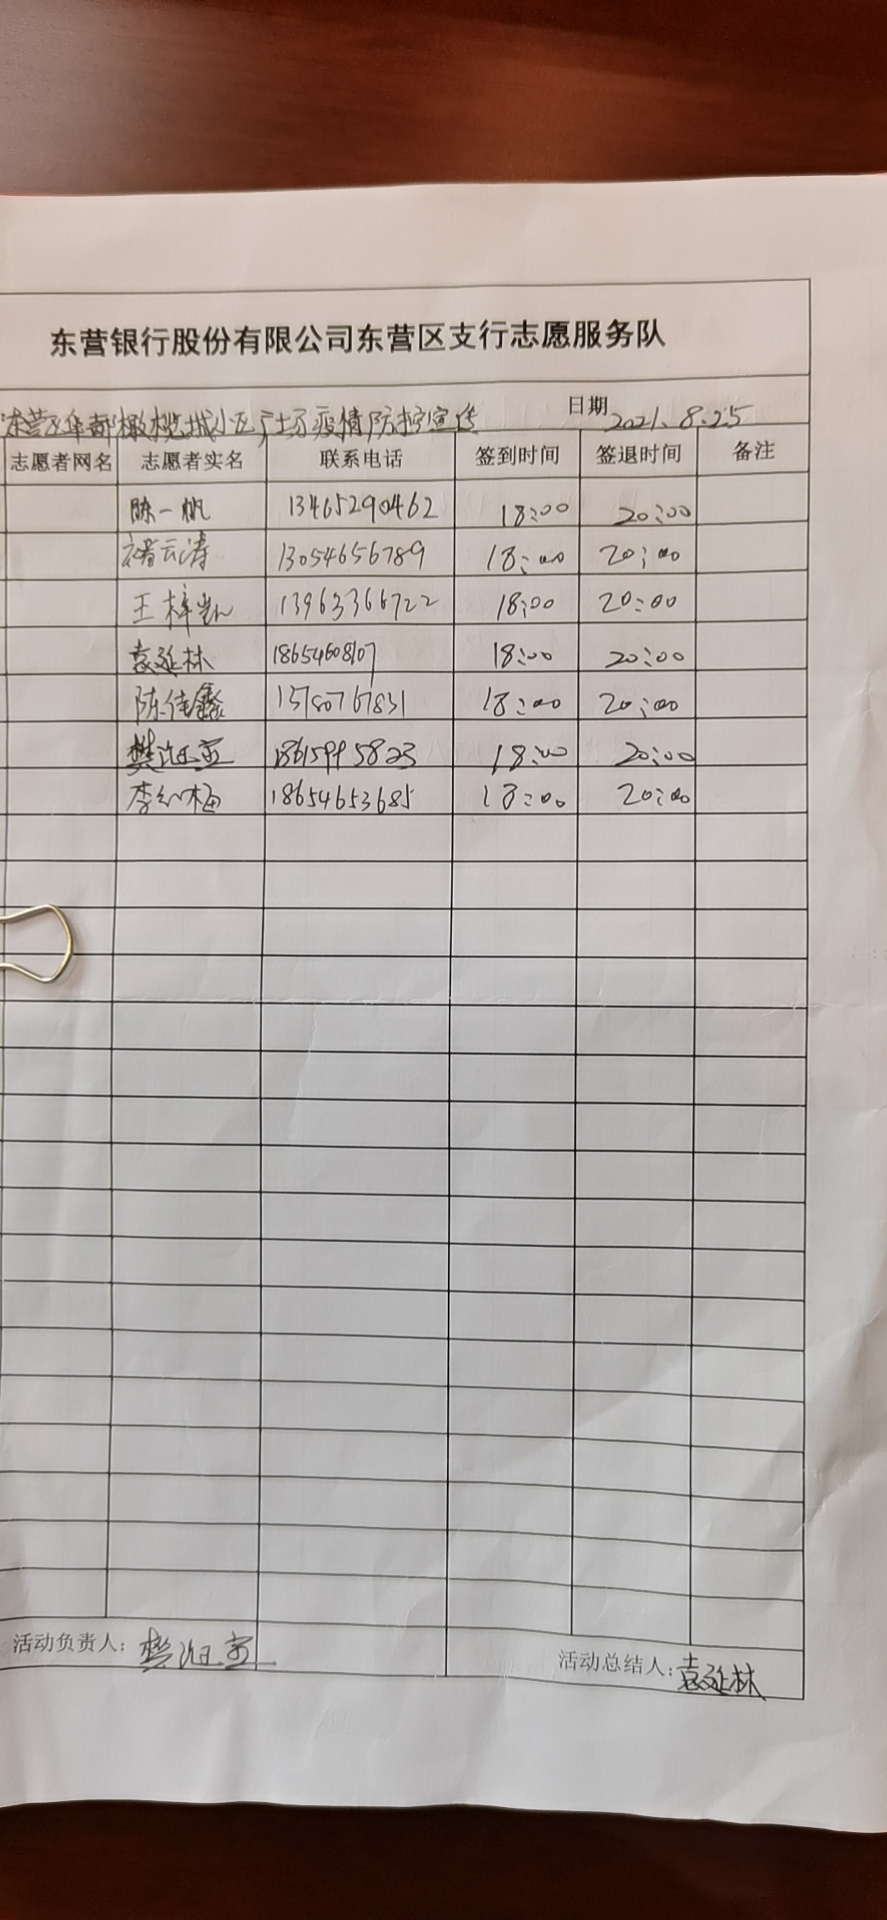 东营银行股份有限公司东营区支行志愿服务队
东营区华都橄榄城小区广场疫情防控宣传 日期 2021.8.25
志愿者网名 志愿者实名 联系电话 签到时间 签退时间 备注
陈一帆 13465290462 18:00 20:00
褚云涛 13054656789 18:00 20:00
王梓凯 13963366722 18:00 20:00
袁延林 18654608107 18:00 20:00
陈佳鑫 15780767831 18:00 20:00
樊 18:00 20:00
李红梅 18654653685 18:00 20:00
活动负责人: 樊 活动总结人: 袁延林